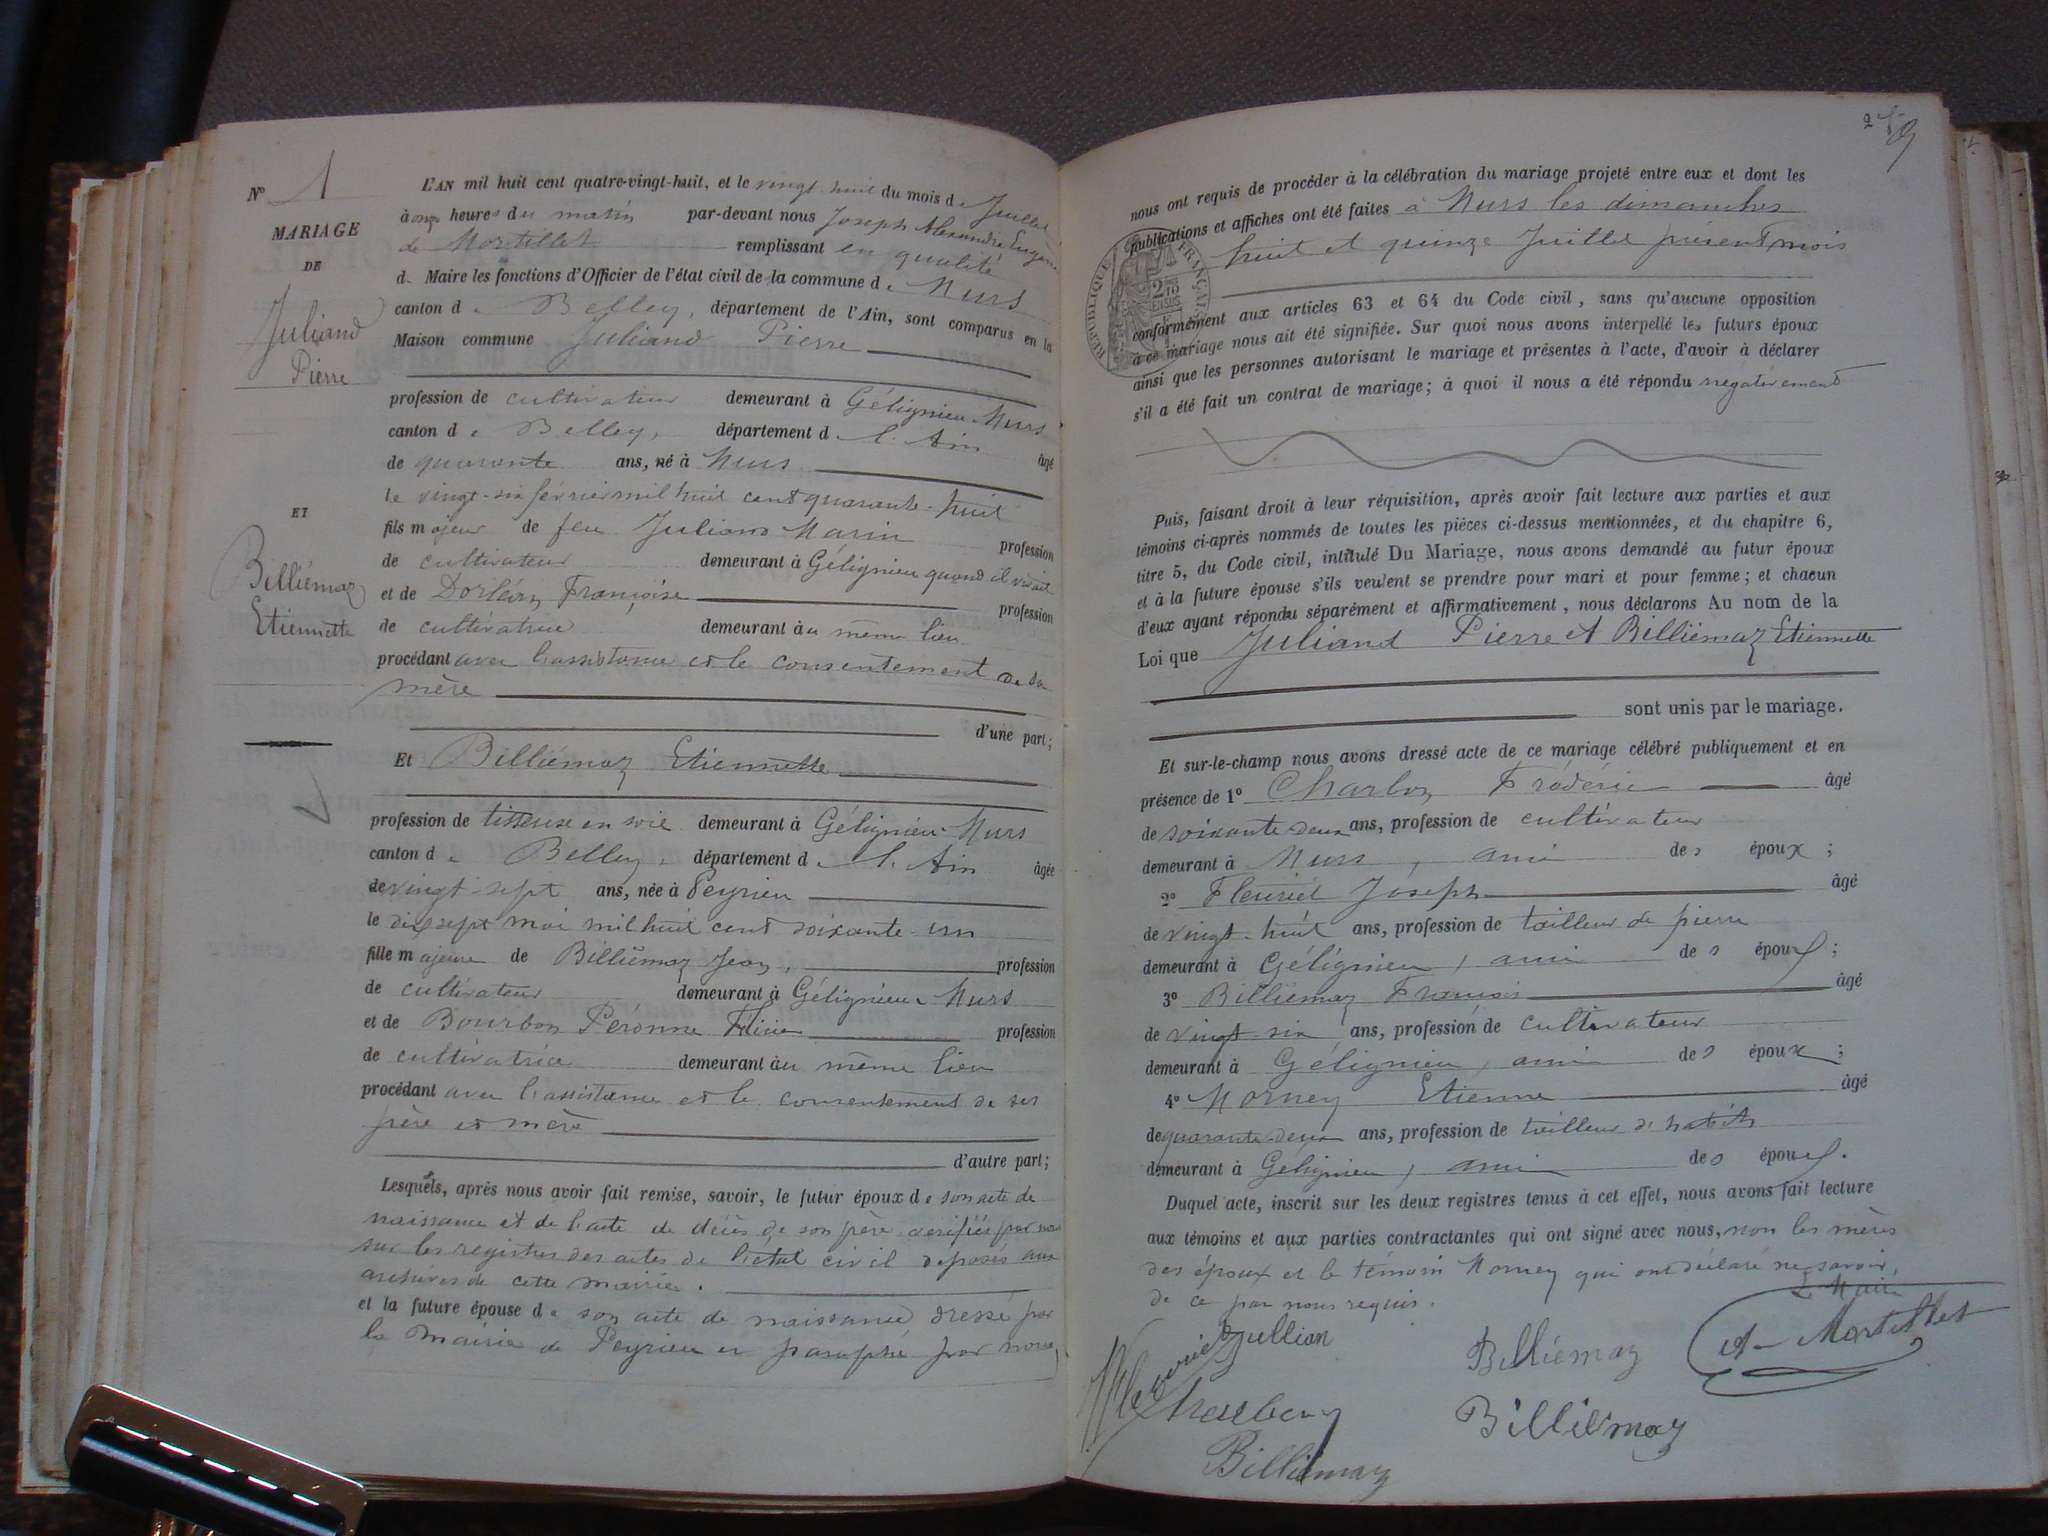 N° 1
MARIAGE
DE
Juliand
Pierre
ET
Billiémaz
Etiennette
L'AN mil huit cent quatre-vingt-huit, et le vingt-huit du mois de Juillet
à onze heures du matin par-devant nous Joseph Alexandre Eugène
de Mortillet remplissant en qualité
d Maire les fonctions d'Officier de l'état civil de la commune de Murs
canton de Belley, département de l'Ain, sont comparus en la
Maison commune Juliand Pierre
profession de cultivateur demeurant à Gélignieu-Murs
canton de Belley, département de l'Ain âgé
de quarante ans, né à Murs
le vingt-six février mil huit cent quarante-huit
fils majeur de feu Juliand Marin profession
de cultivateur demeurant à Gélignieu quand il vivait
et de Françoise profession
de cultivatrice demeurant au même lieu
procédant avec l'assistance et le consentement de sa
mère
d'une part;
Et Billiémaz Etiennette
profession de tisseuse en soie demeurant à Gélignieu-Murs
canton de Belley, département de l'Ain âgée
de vingt-sept ans, née à Peyrieu
le dix sept mai mil huit cent soixante-un
fille majeure de Billiémaz Jean, profession
de cultivateur demeurant à Gélignieu-Murs
et de Bourbon Péronne Félicie profession
de cultivatrice demeurant au même lieu
procédant avec l'assistance et le consentement de ses
père et mère
d'autre part;
Lesquels, après nous avoir fait remise, savoir, le futur époux de son acte de
naissance et de l'acte de décès de son père vérifiés par nous
sur les registres des actes de l'état civil déposés aux
archives de cette mairie.
et la future épouse de son acte de naissance dressé par
la Mairie de Peyrieu et paraphé par nous
9
nous ont requis de procéder à la célébration du mariage projeté entre eux et dont les
publications et affiches ont été faites à Murs les dimanches
huit et quinze Juillet présent mois
RÉPUBLIQUE FRANÇAISE
conformément aux articles 63 et 64 du Code civil, sans qu'aucune opposition
à ce mariage nous ait été signifiée. Sur quoi nous avons interpellé les futurs époux
ainsi que les personnes autorisant le mariage et présentes à l'acte, d'avoir à déclarer
s'il a été fait un contrat de mariage; à quoi il nous a été répondu négativement
Puis, faisant droit à leur réquisition, après avoir fait lecture aux parties et aux
témoins ci-après nommés de toutes les pièces ci-dessus mentionnées, et du chapitre 6,
titre 5, du Code civil, intitulé Du Mariage, nous avons demandé au futur époux
et à la future épouse s'ils veulent se prendre pour mari et pour femme; et chacun
d'eux ayant répondu séparément et affirmativement, nous déclarons Au nom de la
Loi que Juliand Pierre et Billiémaz Etiennette
sont unis par le mariage.
Et sur-le-champ nous avons dressé acte de ce mariage célébré publiquement et en
présence de 1° Frédéric âgé
de soixante deux ans, profession de cultivateur
demeurant à Murs, ami des époux;
2° Fleuriel Joseph âgé
de vingt-huit ans, profession de tailleur de pierre
demeurant à Gélignieu, ami des époux;
3° Billiémaz François âgé
de vingt-six ans, profession de cultivateur
demeurant à Gélignieu, ami des époux;
4° Morney Etienne âgé
de quarante-deux ans, profession de tailleur d'habits
demeurant à Gélignieu, ami des époux.
Duquel acte, inscrit sur les deux registres tenus à cet effet, nous avons fait lecture
aux témoins et aux parties contractantes qui ont signé avec nous, non les mères
des époux et le témoin Morney qui ont déclaré ne savoir,
de ce par nous requis.
Le Maire
Jullian
Billiémaz
Mortillet
Billiémaz
Billiémaz